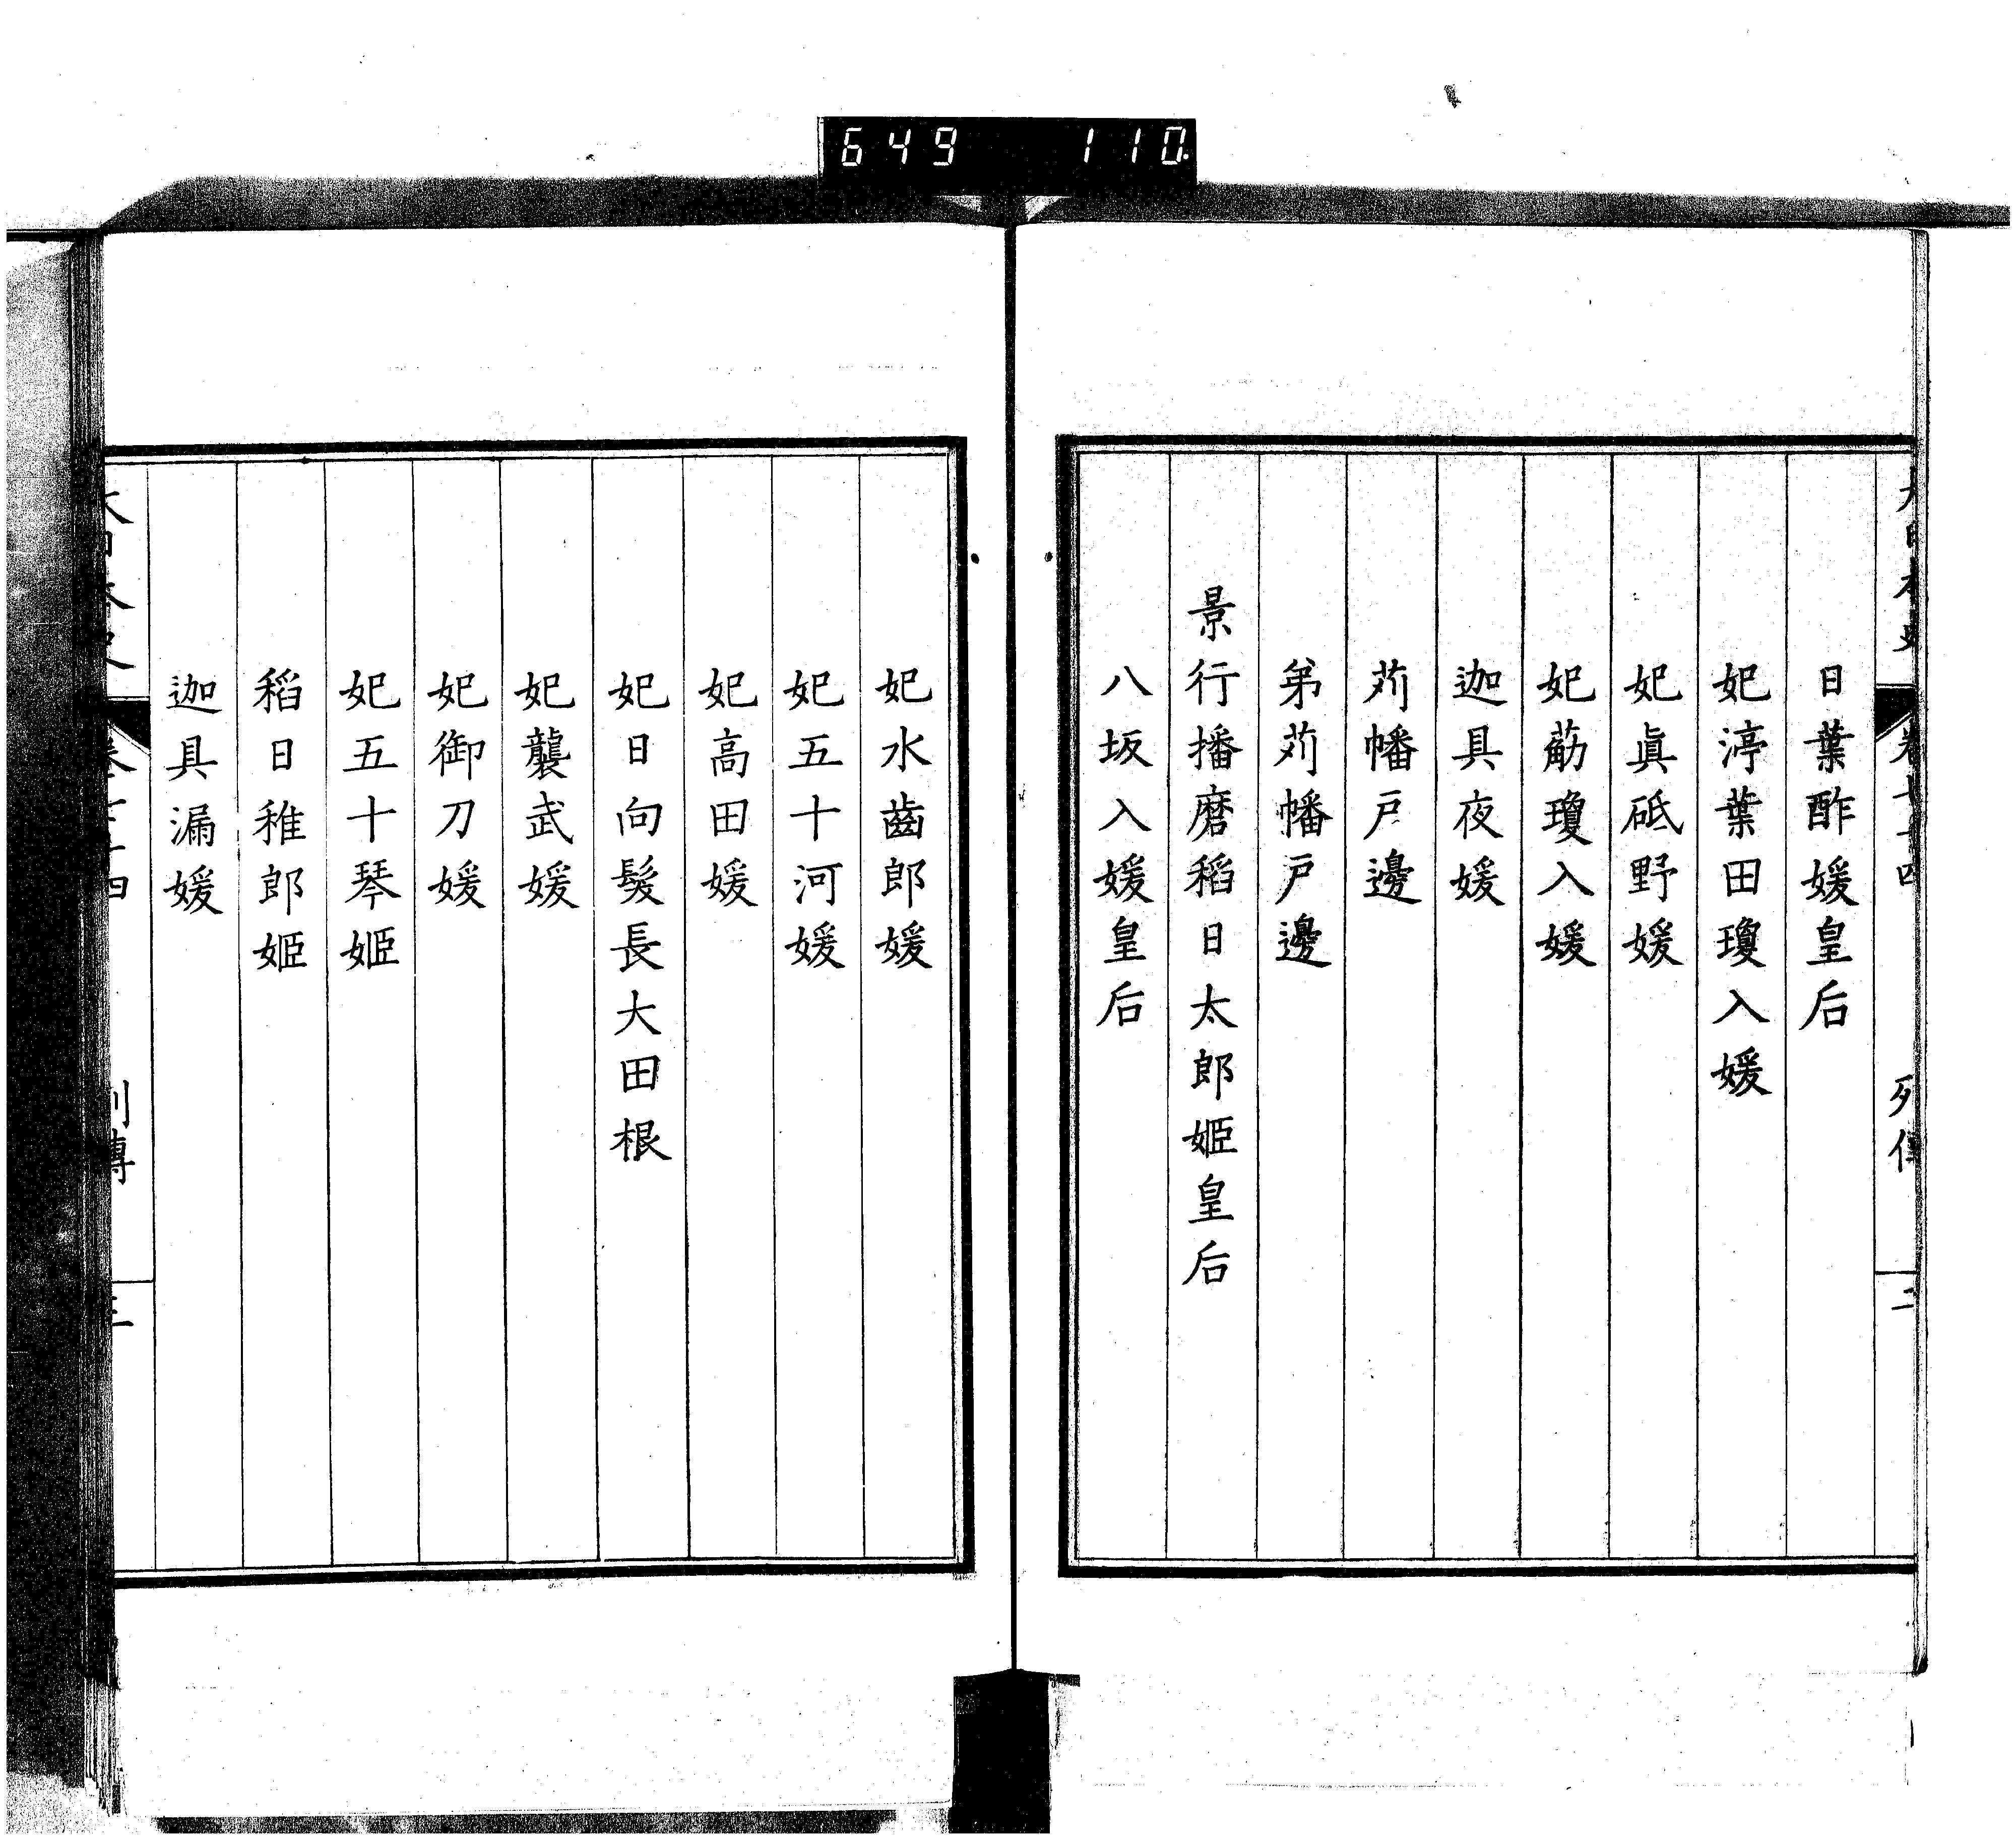 649 110
大日本史 卷七十四 列傳 二
日葉酢媛皇后
妃渟葉田瓊入媛
妃眞砥野媛
妃薊瓊入媛
迦具夜媛
苅幡戸邊
弟苅幡戸邊
景行播磨稻日太郎姬皇后
八坂入媛皇后
妃水齒郎媛
妃五十河媛
妃高田媛
妃日向髮長大田根
妃襲武媛
妃御刀媛
妃五十琴姬
稻日稚郎姬
迦具漏媛
大日本史 卷七十四 列傳 三